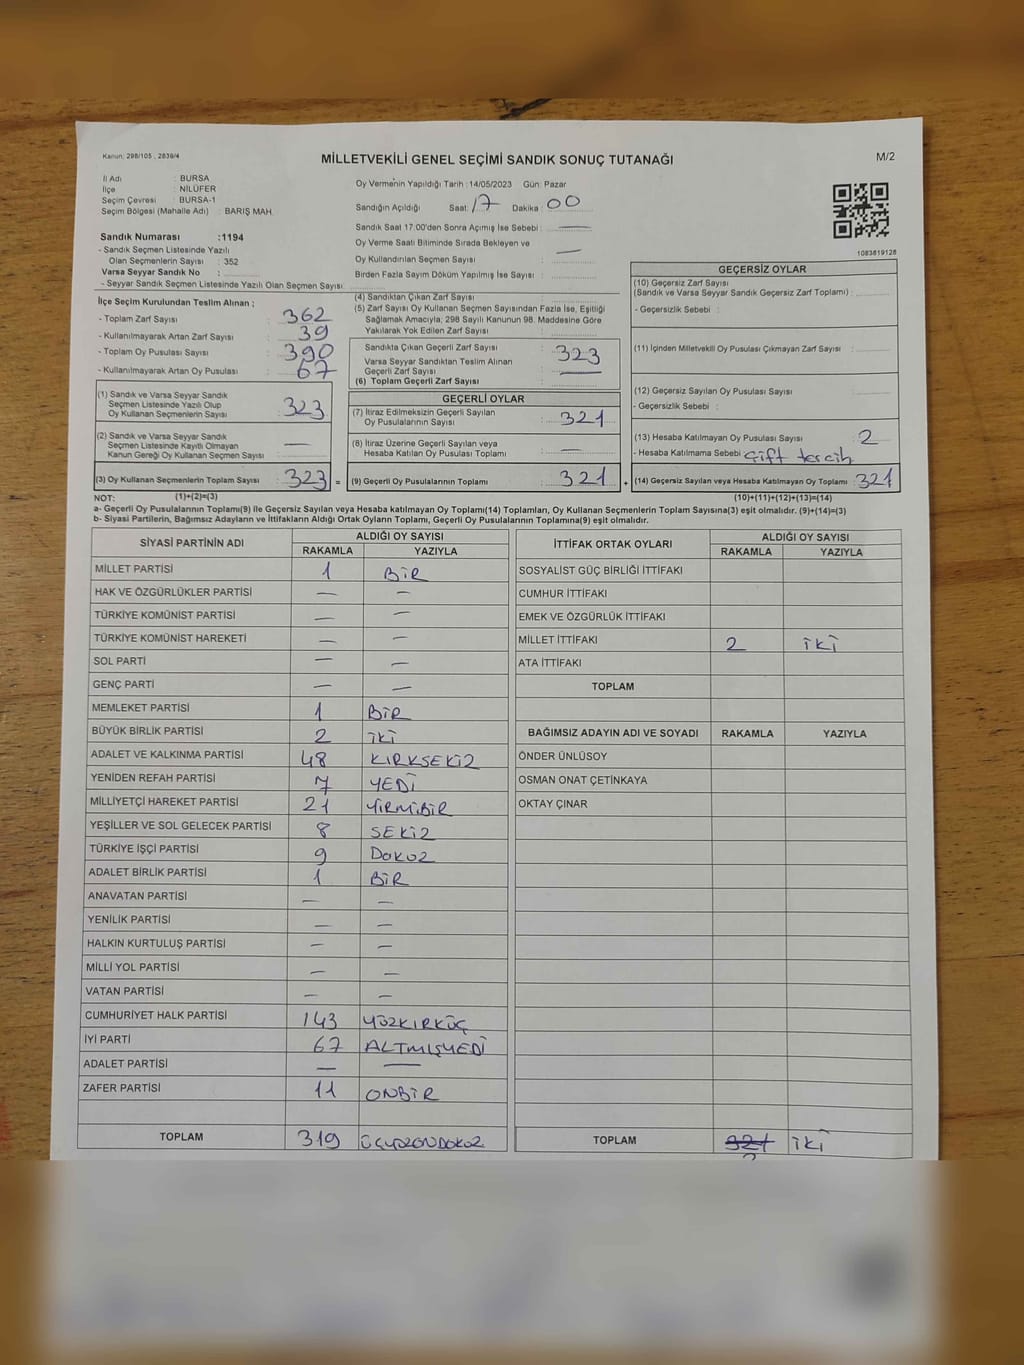 Kanun: 298/105 , 2839/4
MİLLETVEKİLİ GENEL SEÇİMİ SANDIK SONUÇ TUTANAĞI
M/2
İl Adı : BURSA
İlçe : NİLÜFER
Seçim Çevresi : BURSA-1
Seçim Bölgesi (Mahalle Adı) : BARIŞ MAH.
Sandık Numarası :1194
- Sandık Seçmen Listesinde Yazılı
Olan Seçmenlerin Sayısı : 352
Varsa Seyyar Sandık No :
- Seyyar Sandık Seçmen Listesinde Yazılı Olan Seçmen Sayısı:
Oy Verme'nin Yapıldığı Tarih :14/05/2023 Gün: Pazar
Sandığın Açıldığı Saat: 17 Dakika : 00
Sandık Saat 17:00'den Sonra Açımış İse Sebebi : —
Oy Verme Saati Bitiminde Sırada Bekleyen ve
Oy Kullandırılan Seçmen Sayısı : —
Birden Fazla Sayım Döküm Yapılmış İse Sayısı :
1083819128
İlçe Seçim Kurulundan Teslim Alınan ;
- Toplam Zarf Sayısı : 362
- Kullanılmayarak Artan Zarf Sayısı : 39
- Toplam Oy Pusulası Sayısı : 390
- Kullanılmayarak Artan Oy Pusulası : 67
(1) Sandık ve Varsa Seyyar Sandık
Seçmen Listesinde Yazılı Olup
Oy Kullanan Seçmenlerin Sayısı : 323
(2) Sandık ve Varsa Seyyar Sandık
Seçmen Listesinde Kayıtlı Olmayan
Kanun Gereği Oy Kullanan Seçmen Sayısı : —
(3) Oy Kullanan Seçmenlerin Toplam Sayısı : 323 =
(4) Sandıktan Çıkan Zarf Sayısı :
(5) Zarf Sayısı Oy Kullanan Seçmen Sayısından Fazla İse, Eşitliği
Sağlamak Amacıyla; 298 Sayılı Kanunun 98. Maddesine Göre
Yakılarak Yok Edilen Zarf Sayısı :
Sandıkta Çıkan Geçerli Zarf Sayısı : 323
Varsa Seyyar Sandıktan Teslim Alınan
Geçerli Zarf Sayısı : —
(6) Toplam Geçerli Zarf Sayısı :
GEÇERLİ OYLAR
(7) İtiraz Edilmeksizin Geçerli Sayılan
Oy Pusulalarının Sayısı : 321
(8) İtiraz Üzerine Geçerli Sayılan veya
Hesaba Katılan Oy Pusulası Toplamı : —
(9) Geçerli Oy Pusulalarının Toplamı : 321 +
GEÇERSİZ OYLAR
(10) Geçersiz Zarf Sayısı
(Sandık ve Varsa Seyyar Sandık Geçersiz Zarf Toplamı) :
- Geçersizlik Sebebi :
(11) İçinden Milletvekili Oy Pusulası Çıkmayan Zarf Sayısı :
(12) Geçersiz Sayılan Oy Pusulası Sayısı :
- Geçersizlik Sebebi :
(13) Hesaba Katılmayan Oy Pusulası Sayısı : 2
- Hesaba Katılmama Sebebi : Çift tercih
(14) Geçersiz Sayılan veya Hesaba Katılmayan Oy Toplamı : 321
NOT: (1)+(2)=(3) (10)+(11)+(12)+(13)=(14)
a- Geçerli Oy Pusulalarının Toplamı(9) ile Geçersiz Sayılan veya Hesaba Katılmayan Oy Toplamı(14) Toplamları, Oy Kullanan Seçmenlerin Toplam Sayısına(3) eşit olmalıdır. (9)+(14)=(3)
b- Siyasi Partilerin, Bağımsız Adayların ve İttifakların Aldığı Ortak Oyların Toplamı, Geçerli Oy Pusulalarının Toplamına(9) eşit olmalıdır.
SİYASİ PARTİNİN ADI ALDIĞI OY SAYISI
RAKAMLA YAZIYLA
MİLLET PARTİSİ 1 BİR
HAK VE ÖZGÜRLÜKLER PARTİSİ — —
TÜRKİYE KOMÜNİST PARTİSİ — —
TÜRKİYE KOMÜNİST HAREKETİ — —
SOL PARTİ — —
GENÇ PARTİ — —
MEMLEKET PARTİSİ 1 BİR
BÜYÜK BİRLİK PARTİSİ 2 İKİ
ADALET VE KALKINMA PARTİSİ 48 KIRKSEKİZ
YENİDEN REFAH PARTİSİ 7 YEDİ
MİLLİYETÇİ HAREKET PARTİSİ 21 YİRMİBİR
YEŞİLLER VE SOL GELECEK PARTİSİ 8 SEKİZ
TÜRKİYE İŞÇİ PARTİSİ 9 DOKUZ
ADALET BİRLİK PARTİSİ 1 BİR
ANAVATAN PARTİSİ — —
YENİLİK PARTİSİ — —
HALKIN KURTULUŞ PARTİSİ — —
MİLLİ YOL PARTİSİ — —
VATAN PARTİSİ — —
CUMHURİYET HALK PARTİSİ 143 YÜZKIRKÜÇ
İYİ PARTİ 67 ALTMIŞYEDİ
ADALET PARTİSİ — —
ZAFER PARTİSİ 11 ONBİR
TOPLAM 319 ÜÇYÜZONDOKUZ
İTTİFAK ORTAK OYLARI ALDIĞI OY SAYISI
RAKAMLA YAZIYLA
SOSYALİST GÜÇ BİRLİĞİ İTTİFAKI
CUMHUR İTTİFAKI
EMEK VE ÖZGÜRLÜK İTTİFAKI
MİLLET İTTİFAKI 2 İKİ
ATA İTTİFAKI
TOPLAM
BAĞIMSIZ ADAYIN ADI VE SOYADI RAKAMLA YAZIYLA
ÖNDER ÜNLÜSOY
OSMAN ONAT ÇETİNKAYA
OKTAY ÇINAR
TOPLAM 321 İKİ